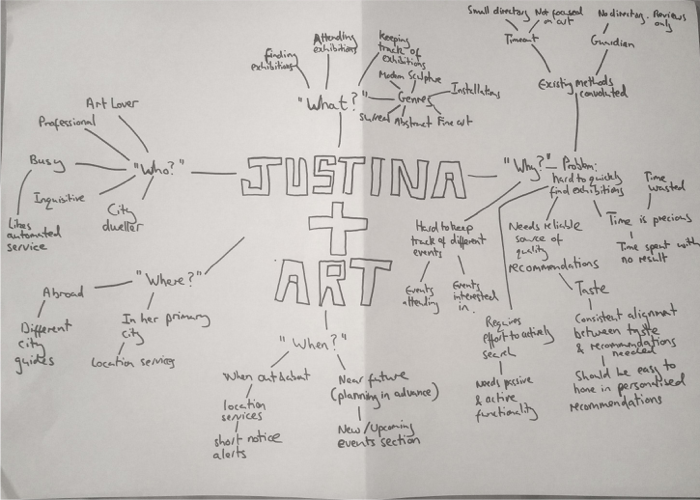 Small directory
Not focused
on art
No directory. Reviews
only
Timeout
Guardian
Existing methods
convoluted
Finding
exhibitions
Attending
exhibitions
Keeping
track of
exhibitions
"What?"
Genres
Modern
Sculpture
Installations
Surreal
Abstract
Fine art
Art Lover
Professional
Busy
"Who?"
Inquisitive
City
dweller
Likes
automated
service
JUSTINA
+
ART
"Why?"
Problem:
hard to quickly
find exhibitions
Time
wasted
Time is precious
Time spent with
no result
Hard to keep
track of different
events
Events
attending
Events
interested
in.
Needs reliable
source of
quality
recommendations
Taste
Consistent alignment
between taste
& recommendations
needed
Should be easy to
hone in personalised
recommendations
Requires
effort to actively
search
Needs passive
& active
functionality
"Where?"
Abroad
Different
city
guides
In her primary
city
Location services
"When?"
When out & about
location
services
short notice
alerts
Near future
(planning in advance)
New/Upcoming
events section